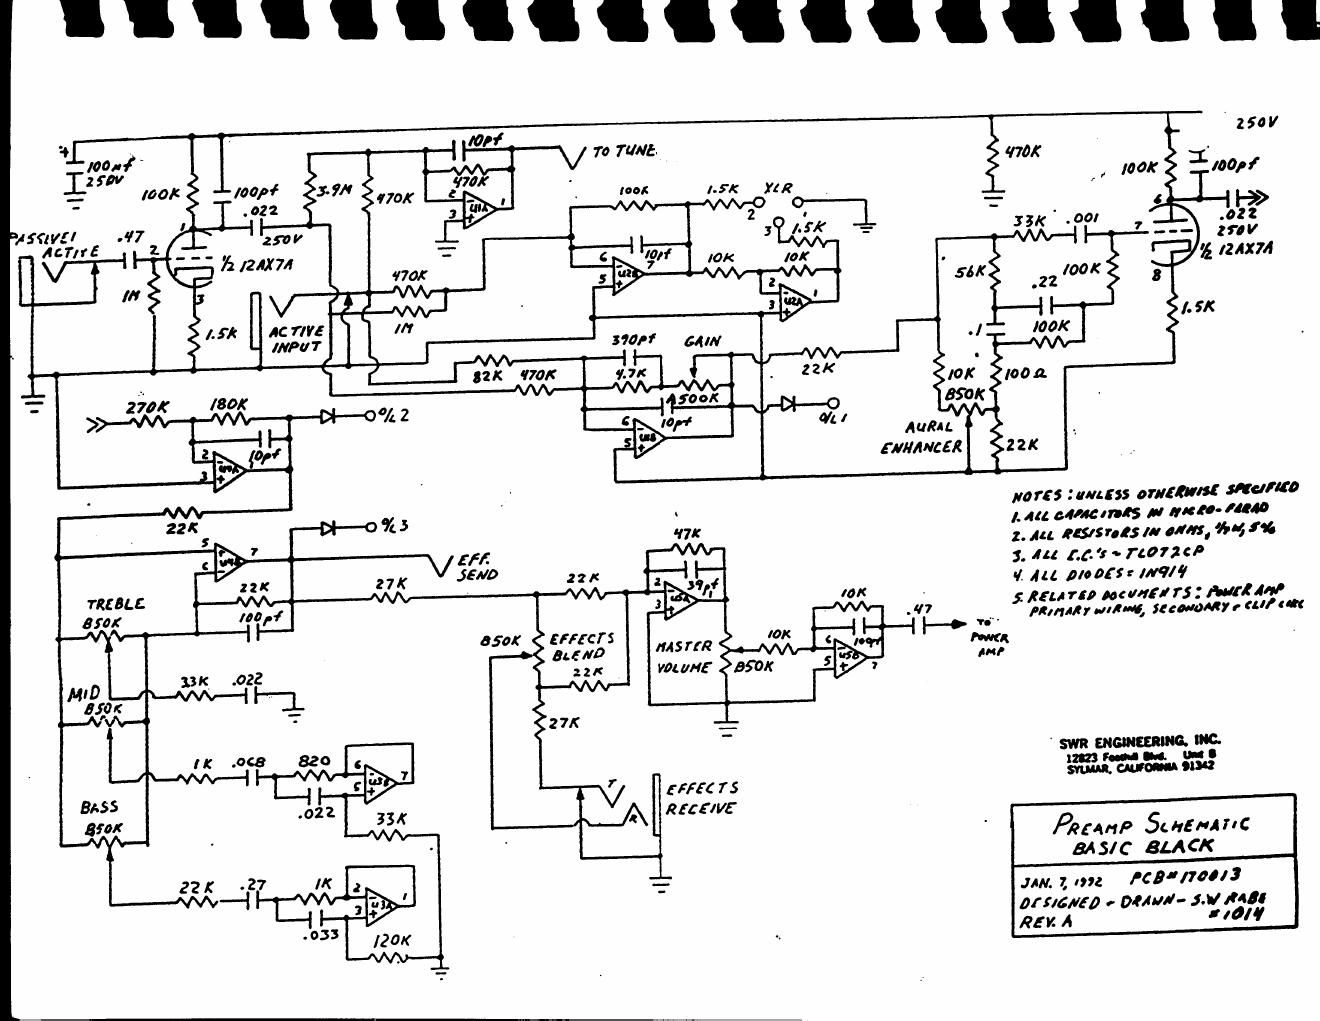 +
100mf
250V
100K
100pf
.022
250V
PASSIVE/
ACTIVE
.47
2
1
3
½ 12AX7A
1M
1.5K
3.9M
470K
10pf
470K
2
3
U1A
1
TO TUNE
ACTIVE
INPUT
470K
1M
100K
10pf
6
5
U2B
7
1.5K
XLR
2
1
3
1.5K
10K
10K
2
3
U2A
1
470K
250V
100K
100pf
6
.022
250V
7
½ 12AX7A
8
1.5K
33K
.001
56K
100K
.22
.1
100K
100Ω
10K
B50K
AURAL
ENHANCER
22K
82K
470K
390pf
4.7K
GAIN
500K
10pf
6
5
U1B
22K
O/L 1
270K
180K
10pf
2
3
U4A
1
O/L 2
22K
5
6
U4B
7
O/L 3
EFF.
SEND
22K
100pf
27K
TREBLE
B50K
33K
.022
MID
B50K
1K
.068
820
.022
6
5
U3B
7
33K
BASS
B50K
22K
.27
1K
.033
2
3
U3A
1
120K
B50K
EFFECTS
BLEND
22K
22K
27K
T
R
EFFECTS
RECEIVE
47K
39pf
2
3
U5A
1
MASTER
VOLUME
B50K
10K
10K
100pf
6
5
U5B
7
.47
TO
POWER
AMP
NOTES: UNLESS OTHERWISE SPECIFIED
1. ALL CAPACITORS IN MICRO-FARAD
2. ALL RESISTORS IN OHMS, 1/4W, 5%
3. ALL I.C.'s - TL072CP
4. ALL DIODES = 1N914
5. RELATED DOCUMENTS: POWER AMP
PRIMARY WIRING, SECONDARY + CLIP
SWR ENGINEERING, INC.
12823 Foothill Blvd. Unit B
SYLMAR, CALIFORNIA 91342
PREAMP SCHEMATIC
BASIC BLACK
JAN. 7, 1992 PCB# 170013
DESIGNED + DRAWN - S.W RABE
#1014
REV. A